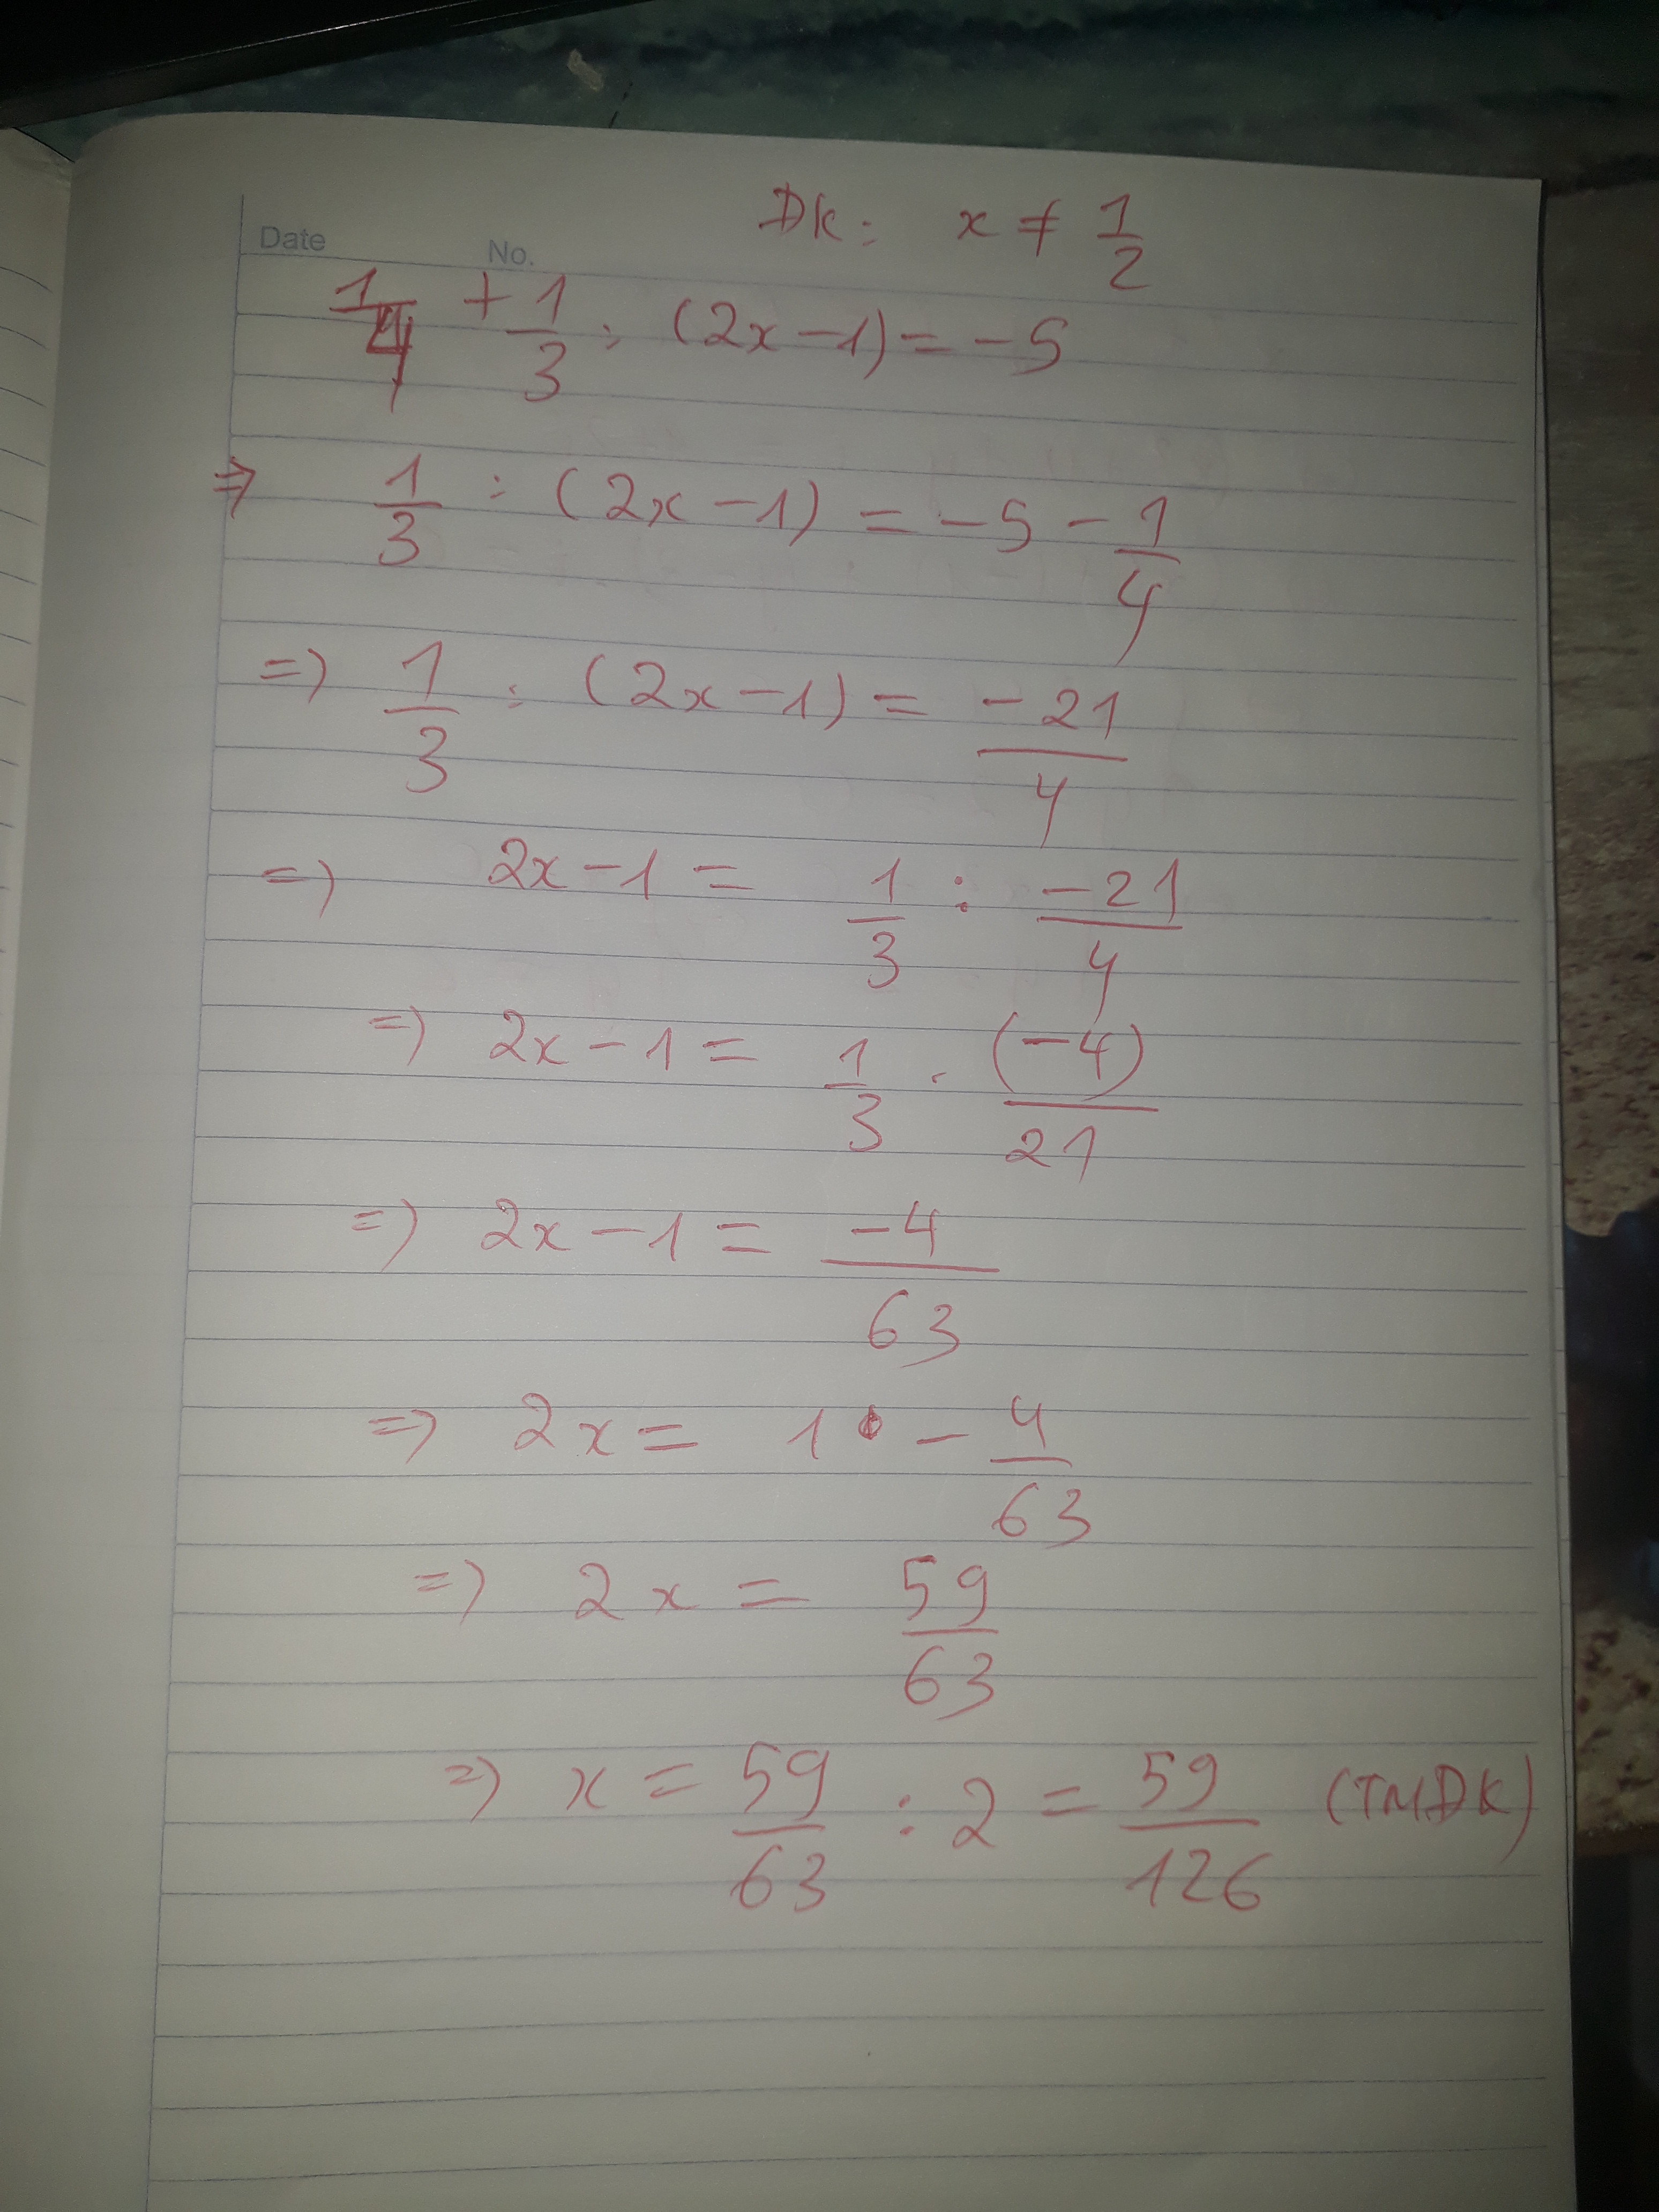 ĐK: x ≠ 1/2
Date No.
1/4 + 1/3 : (2x - 1) = -5
=> 1/3 : (2x - 1) = -5 - 1/4
=> 1/3 : (2x - 1) = -21/4
=> 2x - 1 = 1/3 : -21/4
=> 2x - 1 = 1/3 . (-4)/21
=> 2x - 1 = -4/63
=> 2x = 1 - 4/63
=> 2x = 59/63
=> x = 59/63 : 2 = 59/126 (TMĐK)